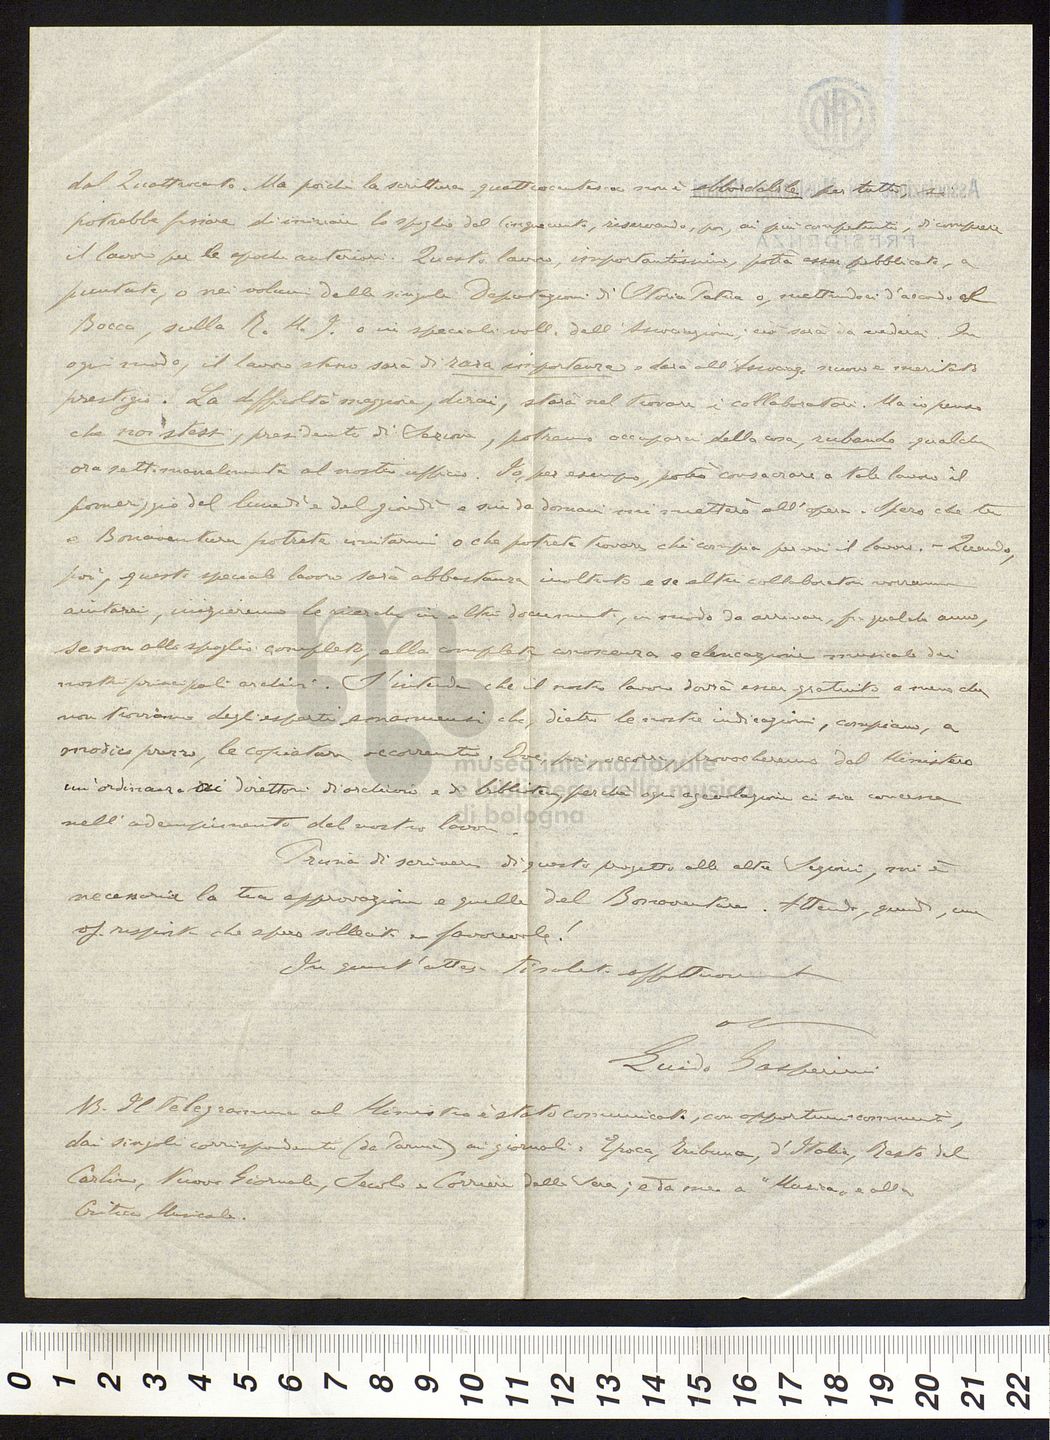 dal Quattrocento. Ma poichè la scrittura quattrocentesca non è abbordabile per tutti, si
potrebbe forse iniziare lo spoglio dal Cinquecento, riservando, poi, ai più competenti, di compiere
il lavoro per le epoche anteriori. Questo lavoro, importantissimo, potrà esser pubblicato, a
puntate, o nei volumi delle singole Deputazioni di Storia Patria o, mettendoci d'accordo col
Bocca, sulla R. M. I. o in speciali voll. dell'Associazione; ciò sarà da vedersi. In
ogni modo, il lavoro stesso sarà di rara importanza e darà all'Associaz. nuovo e meritato
prestigio. La difficoltà maggiore, dirai, starà nel trovare i collaboratori. Ma io penso
che noi stessi, presidenti di Sezione, potremo occuparci della cosa, rubando qualche
ora settimanalmente al nostro ufficio. Io, per esempio, potrò consacrare a tale lavoro il
pomeriggio del lunedì e del giovedì e sin da domani mi metterò all'opera. Spero che tu
e Bonaventura potrete imitarmi o che potrete trovare chi compia per voi il lavoro. - Quando,
poi, questo speciale lavoro sarà abbastanza inoltrato e se altri collaboratori vorranno
aiutarci, inizieremo le ricerche in altri documenti, in modo da arrivare, fra qualche anno,
se non allo spoglio completo, alla completa conoscenza e elencazione musicale dei
nostri principali archivi. S'intende che il nostro lavoro dovrà esser gratuito a meno che
non troviamo degli esperti che, dietro le nostre indicazioni, compiano, a
modico prezzo, le copiature occorrenti. Ove, poi, occorra, provocheremo dal Ministero
un'ordinanza ai direttori di archivio e di biblioteca perchè ogni agevolazione ci sia concessa
nell'adempimento del nostro lavoro.
Prima di scrivere di questo progetto alle altre Sezioni, mi è
necessaria la tua approvazione e quella del Bonaventura. Attendo, quindi, una
risposta che spero sollecita e favorevole!
In quest'attesa ti saluto affettuosamente
Guido Gasperini
NB. Il telegramma al Ministro è stato comunicato, con opportuni commenti,
dai singoli corrispondenti (da Parma) ai giornali: Epoca, Tribuna, d'Italia, Resto del
Carlino, Nuovo Giornale, Secolo e Corriere della Sera; e da me a "Musica" e alla
Critica Musicale.
museo internazionale
e biblioteca della musica
di bologna
PRESIDENZA
0 1 2 3 4 5 6 7 8 9 10 11 12 13 14 15 16 17 18 19 20 21 22